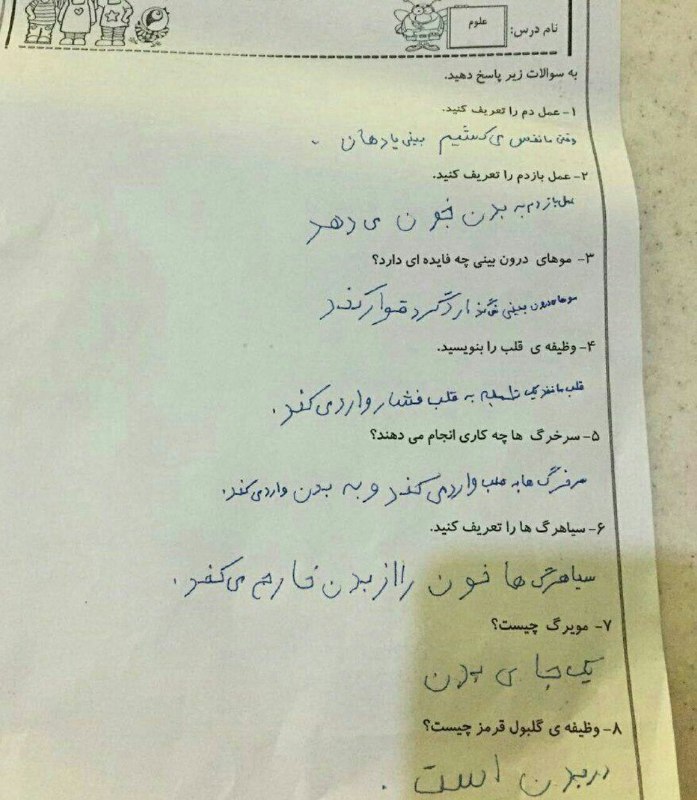 نام درس: علوم
به سوالات زیر پاسخ دهید.
۱- عمل دم را تعریف کنید.
وقتی ما نفس می کشیم بینی یا دهان .
۲- عمل بازدم را تعریف کنید.
عمل بازدم به بدن خون می دهد
۳- موهای درون بینی چه فایده ای دارد؟
موهای درون بینی گرد
۴- وظیفه ی قلب را بنویسید.
قلب ما به قلب فشار وارد می کند .
۵- سرخرگ ها چه کاری انجام می دهند؟
سرخرگ ها به قلب وارد می کند و به بدن وارد می کند.
۶- سیاهرگ ها را تعریف کنید.
سیاهرگ ها خون را از بدن خارج می کند .
۷- مویرگ چیست؟
یک جا ی بدن
۸- وظیفه ی گلبول قرمز چیست؟
در بدن است .